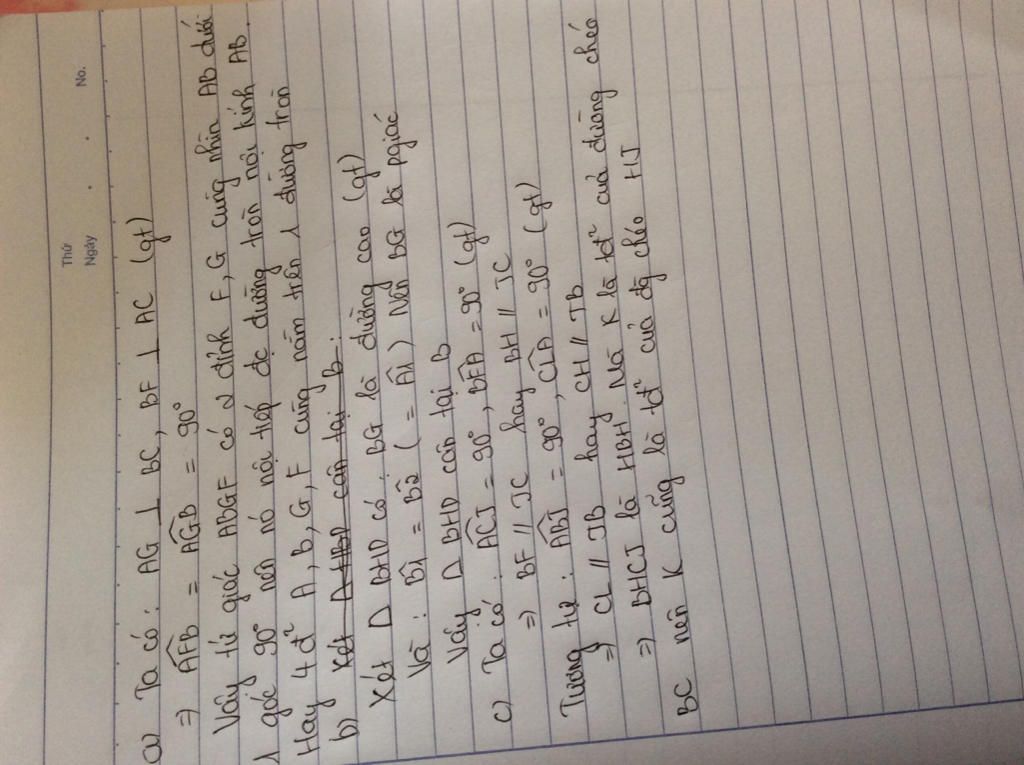 Thứ
Ngày . . No.
a) Ta có: AG ⊥ BC, BF ⊥ AC (gt)
=> AFB = AGB = 90°
Vậy tứ giác ABGF có 2 đỉnh F, G cùng nhìn AB dưới
1 góc 90° nên nó nội tiếp đc đường tròn nội kính AB.
Hay 4 đ² A, B, G, F cùng nằm trên 1 đường tròn
b) Xét Δ HBD cân tại B.
Xét Δ BHD có: BG là đường cao (gt)
Và: B1 = B2 (= A1) Nên BG là pgiác
Vậy Δ BHD cân tại B
c) Ta có: ACJ = 90°, BFA = 90° (gt)
=> BF // JC hay BH // JC
Tương tự: ABJ = 90°, CLA = 90° (gt)
=> CL // JB hay CH // JB
=> BHCJ là HBH. Mà K là tđ² của đường chéo
BC nên K cũng là tđ² của đg chéo HJ